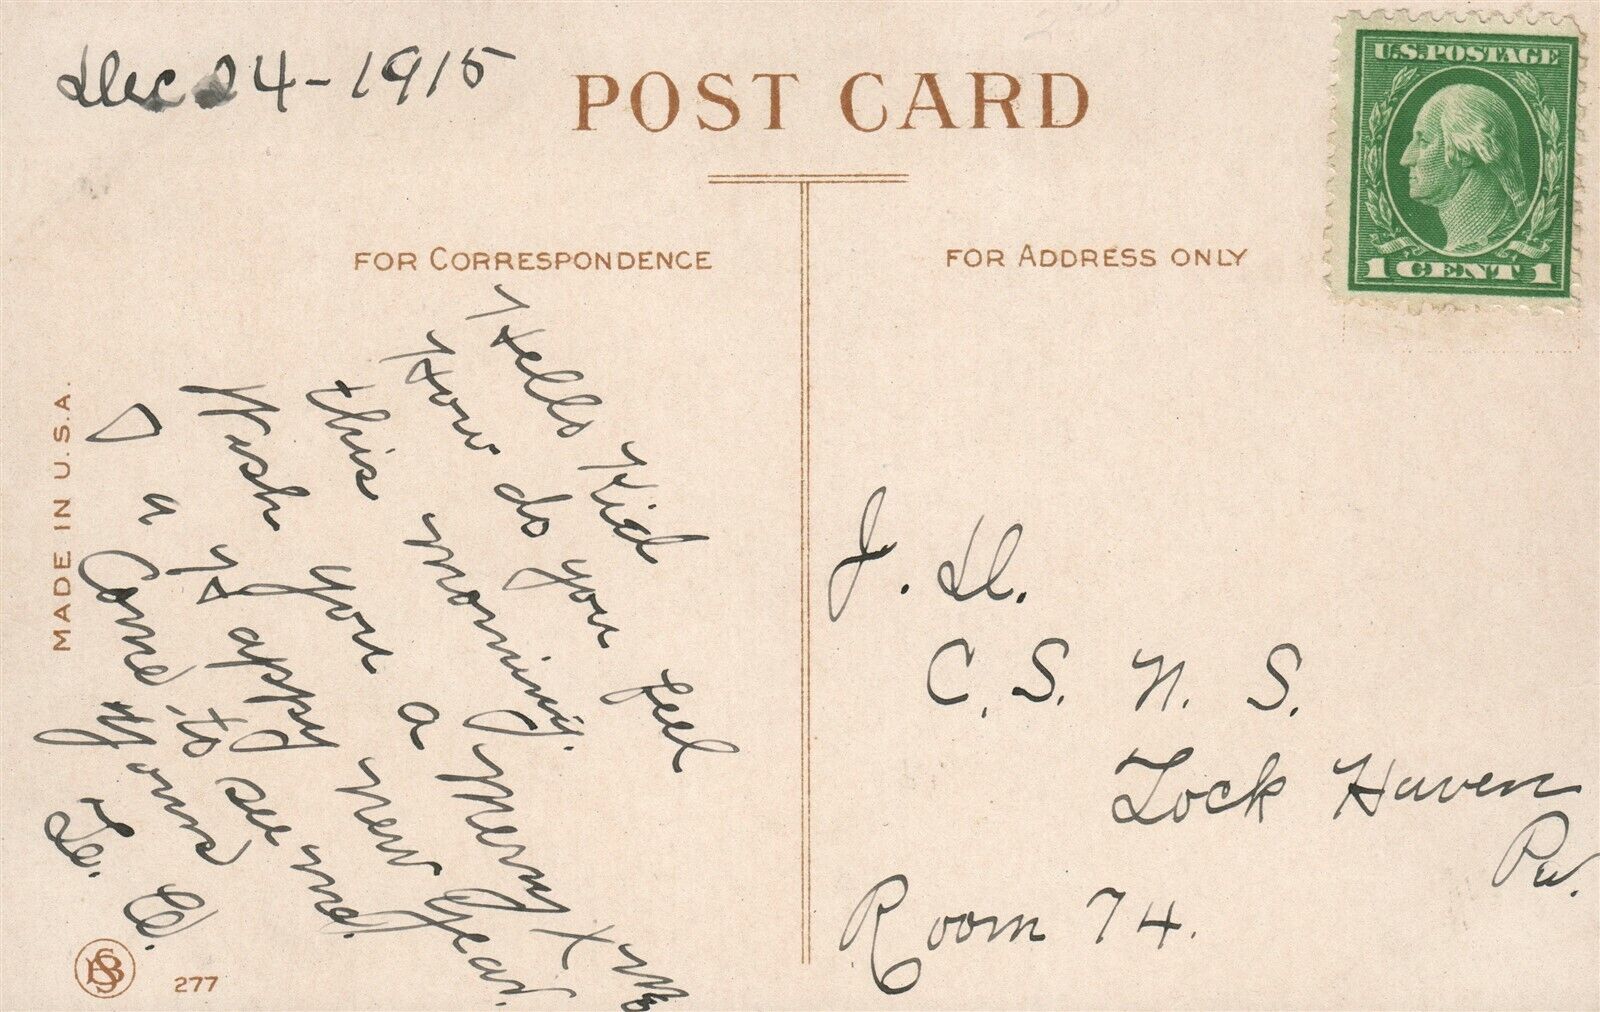 Dec 24-1915
POST CARD
U.S. POSTAGE
1 CENT 1
FOR CORRESPONDENCE
FOR ADDRESS ONLY
Hello Kid
How do you feel
this morning.
Wish you a Merry X mas
& a Happy New Year.
Come to see me.
Yours
MADE IN U.S.A.
277
J. D.
C. S. N. S.
Lock Haven
Pa.
Room 74.